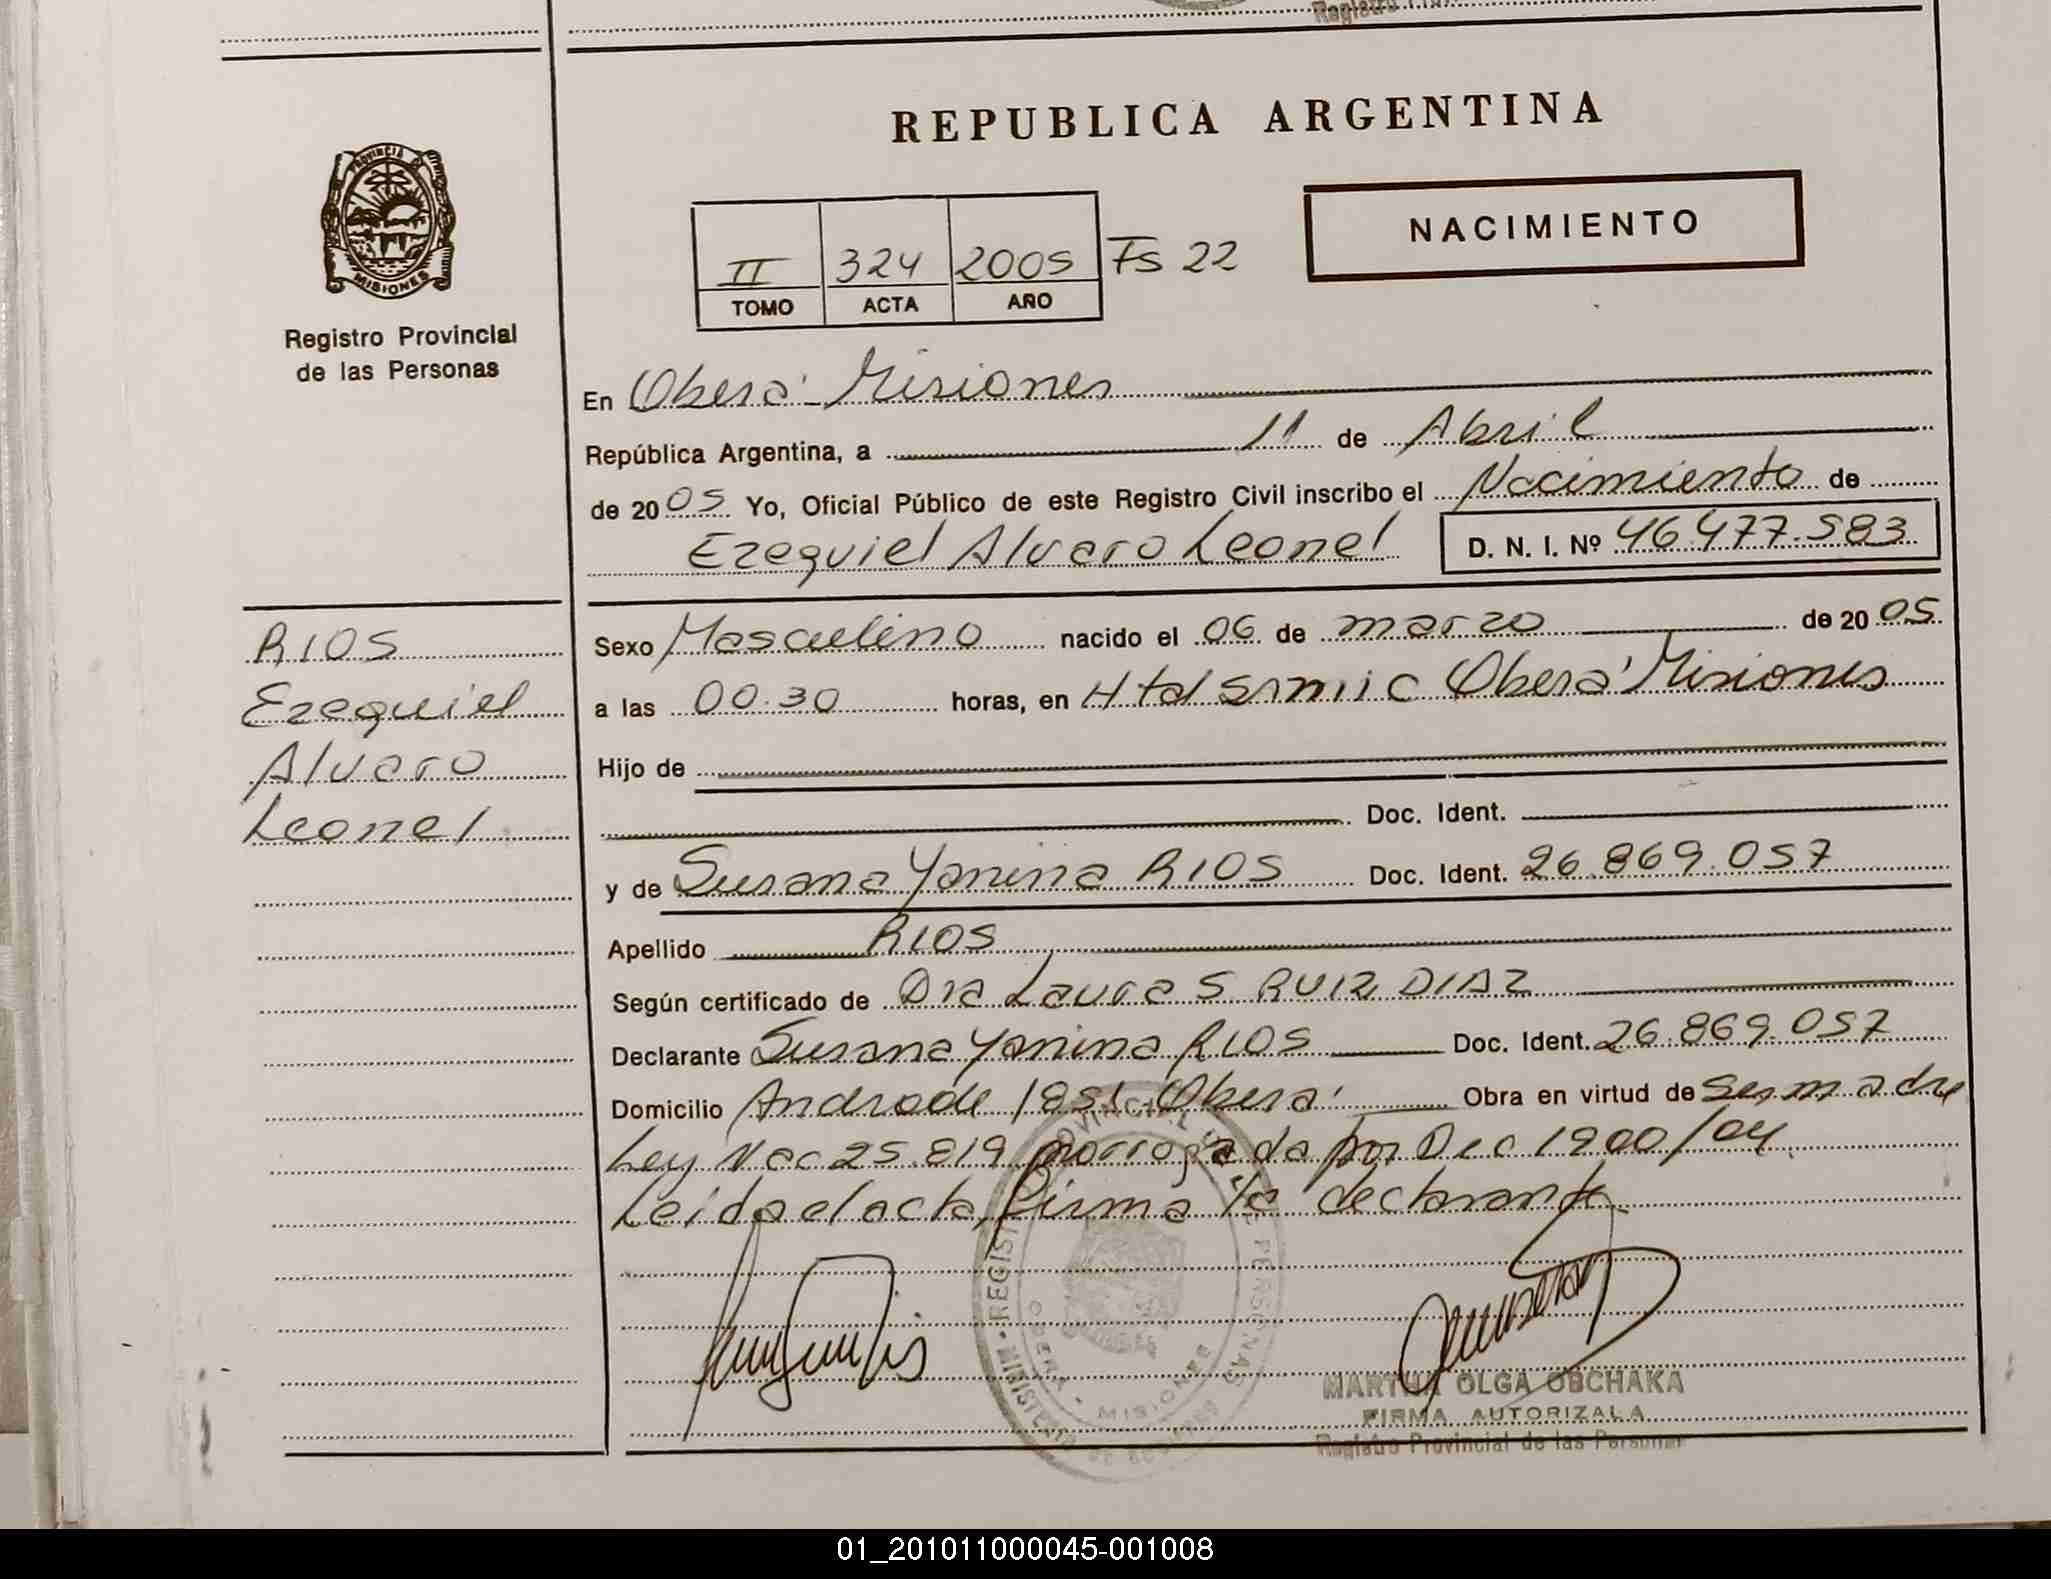 REPUBLICA ARGENTINA
NACIMIENTO
II 324 2005 Fs 22
TOMO ACTA AÑO
PROVINCIA
MISIONES
Registro Provincial
de las Personas
En Oberá - Misiones
República Argentina, a 11 de Abril
de 2005 Yo, Oficial Público de este Registro Civil inscribo el Nacimiento de
Ezequiel Alvaro Leonel D. N. I. Nº 46.477.583
RIOS
Ezequiel
Alvaro
Leonel
Sexo Masculino nacido el 06 de marzo de 2005
a las 00.30 horas, en Htal Samic Oberá Misiones
Hijo de
Doc. Ident.
y de Susana Yanina RIOS Doc. Ident. 26.869.057
Apellido RIOS
Según certificado de Dra Laura S RUIZ DIAZ
Declarante Susana Yanina RIOS Doc. Ident. 26.869.057
Domicilio Andrade 1851 Oberá Obra en virtud de ser madre
Ley Nac 25.819 prorrogada por Dec 1900/04
Leida el acta, firma la declarante
MARTHA OLGA OBCHAKA
FIRMA AUTORIZADA
Registro Provincial de las Personas
01_201011000045-001008